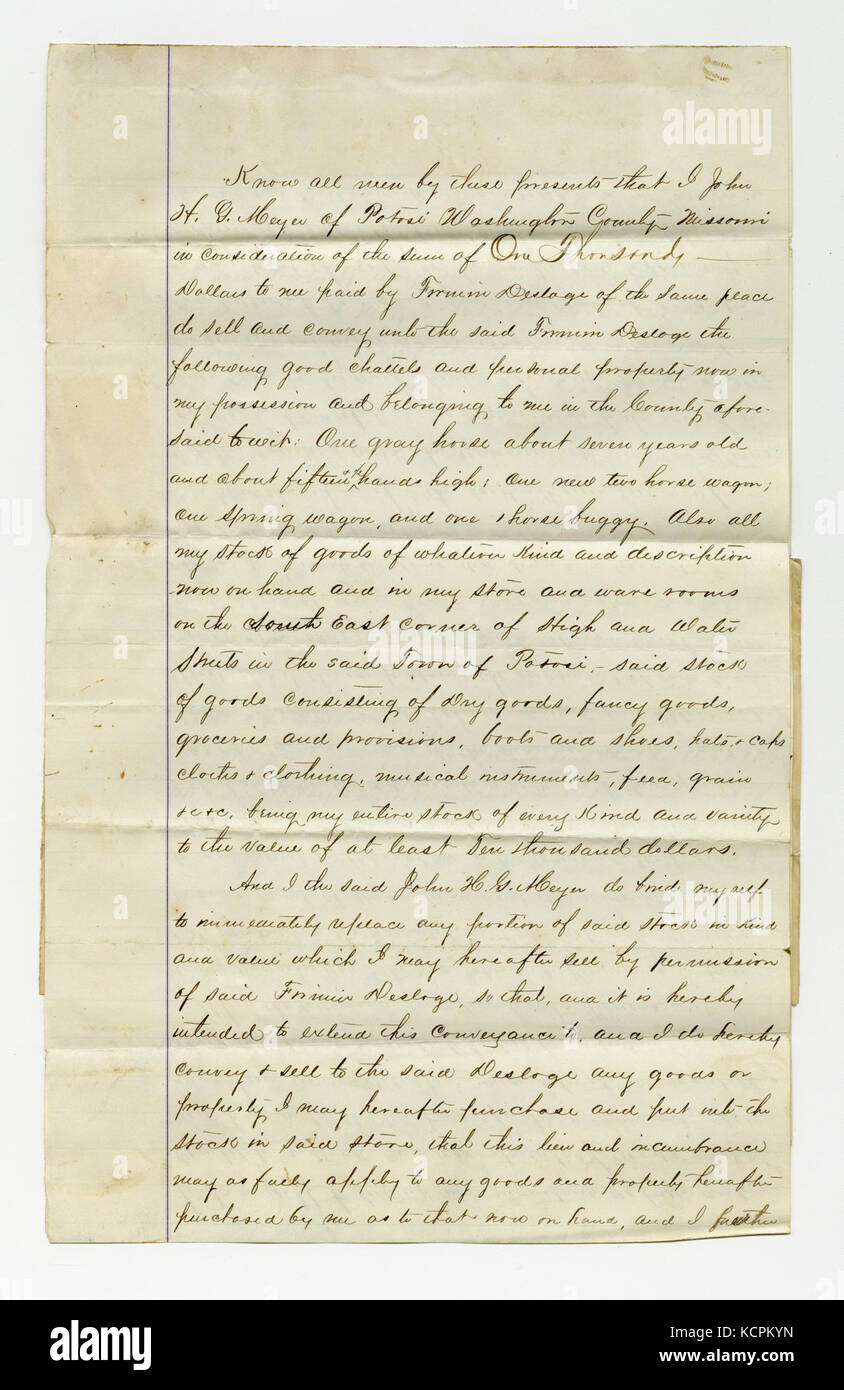 Know all men by these presents that I John
H. G. Meyer of Potosi Washington County Missouri
in consideration of the sum of One Thousand
Dollars to me paid by Firmin Desloge of the same place
do sell and convey unto the said Firmin Desloge the
following good chattels and personal property now in
my possession and belonging to me in the County afore-
said to wit: One gray horse about seven years old
and about fifteen hands high; One new two horse wagon;
One Spring wagon, and one 1 horse buggy. Also all
my stock of goods of whatever kind and description
now on hand and in my store and ware rooms
on the South East corner of High and Water
Streets in the said Town of Potosi, - said stock
of goods consisting of Dry goods, fancy goods,
groceries and provisions, boots and shoes, hats & caps
cloths & clothing, musical instruments, feed, grain
&c &c. being my entire stock of every Kind and variety
to the value of at least Ten thousand dollars.
And I the said John H. G. Meyer do bind myself
to immediately replace any portion of said stock in kind
and value which I may hereafter sell by permission
of said Firmin Desloge, so that, and it is hereby
intended to extend this conveyance to, and I do hereby
convey & sell to the said Desloge any goods or
property I may hereafter purchase and put into the
stock in said store, that this lien and incumbrance
may as fully apply to any goods and property hereafter
purchased by me as to that now on hand, and I further
alamy
Image ID: KCPKYN
www.alamy.com